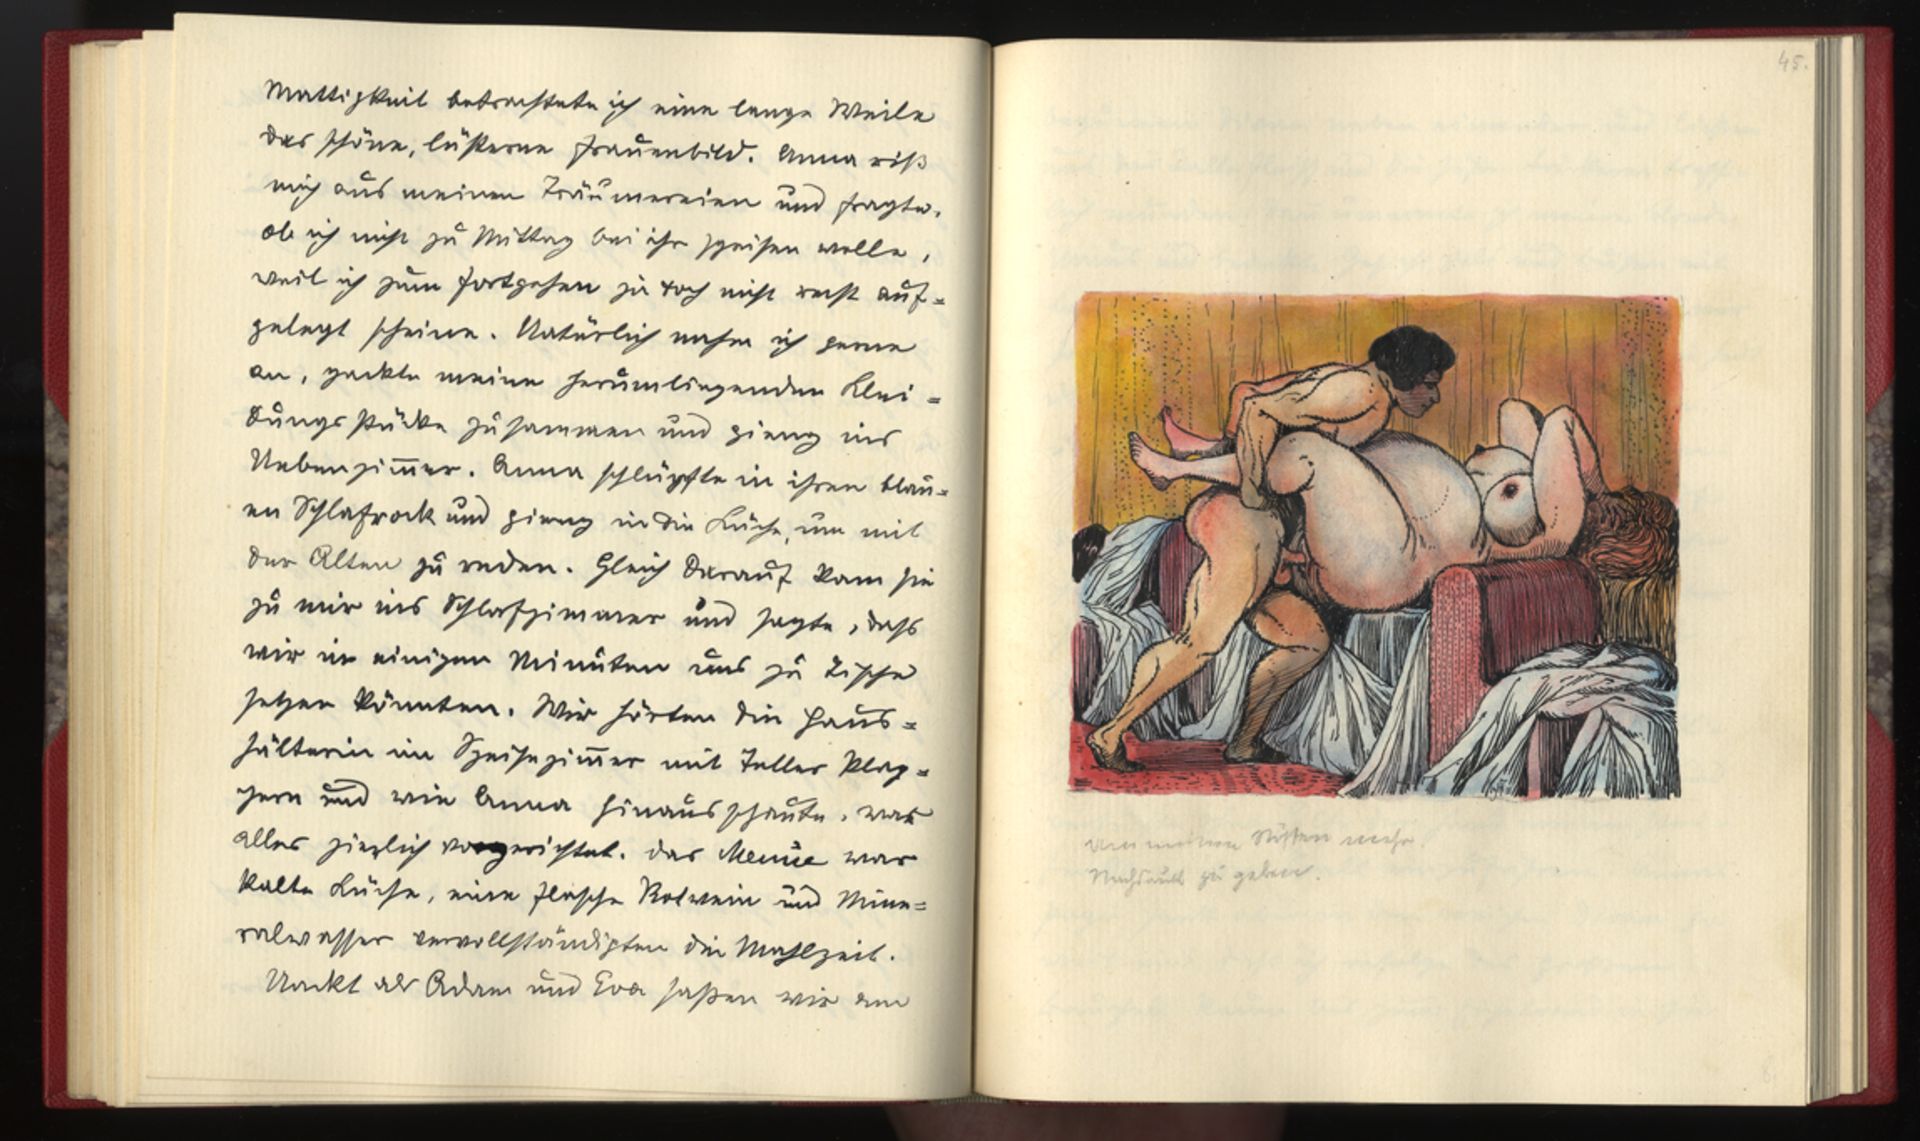 Mattigkeit betrachtete ich eine lange Weile
das schöne, lüsterne Frauenbild. Anna riß
mich aus meinen Träumereien und fragte,
ob ich nicht zu Mittag bei ihr speisen wolle,
weil ich zum Fortgehen ja doch nicht recht auf=
gelegt scheine. Natürlich nahm ich gerne
an, packte meine herumliegenden Klei=
dungsstücke zusammen und gieng ins
Nebenzimmer. Anna schlüpfte in ihren blau=
en Schlafrock und gieng in die Küche, um mit
der Alten zu reden. Gleich darauf kam sie
zu mir ins Schlafzimmer und sagte, dass
wir in einigen Minuten uns zu Tische
setzen könnten. Wir hörten die Haus=
hälterin im Speisezimmer mit Teller klap=
pern und wie Anna hinausschaute, war
alles zierlich vorgerichtet. Das Menüe war
kalte Küche, eine Flasche Rotwein und Mine=
ralwasser vervollständigten die Mahlzeit.
Nackt als Adam und Eva saßen wir am
45.
um meinen Stößen mehr
Nachdruck zu geben.